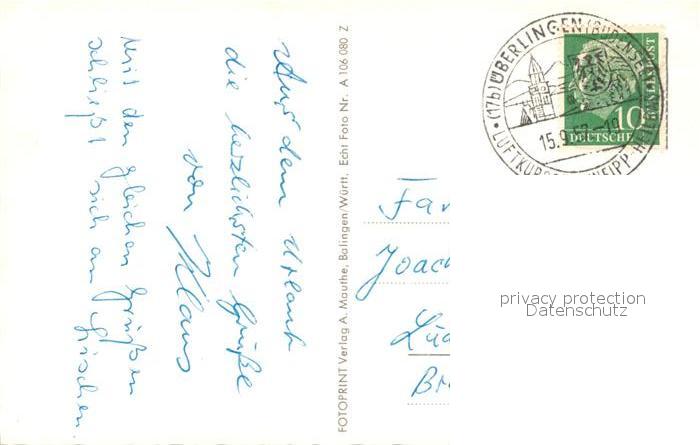 Aus dem Urlaub
die herzlichsten Grüße
von Klaus
Mit den gleichen Grüßen
schließt sich an
FOTOPRINT Verlag A. Mauthe, Balingen/Württ. Echt Foto Nr. A 106 080 Z
(17b) ÜBERLINGEN (BODENSEE)
15.9.
LUFTKURO
NEIPP-HEILB
10
DEUTSCHE
BUNDESPOST
Fa
Joac
Lü
Br
privacy protection
Datenschutz